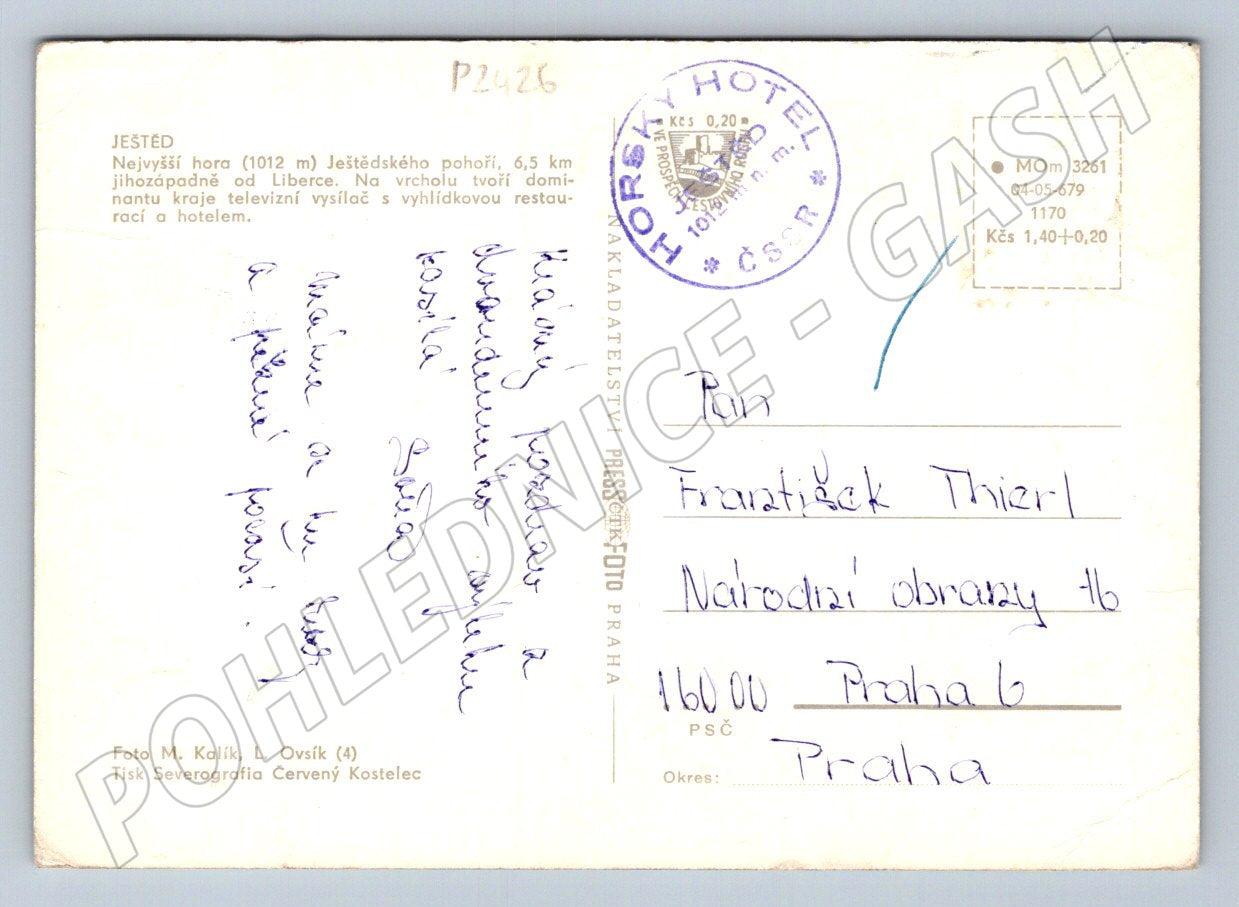 P2426
JEŠTĚD
Nejvyšší hora (1012 m) Ještědského pohoří, 6,5 km
jihozápadně od Liberce. Na vrcholu tvoří domi-
nantu kraje televizní vysílač s vyhlídkovou restau-
rací a hotelem.
Krásný pozdrav a
posílá
a pěkné počasí.
Foto M. Kalík, L. Ovsík (4)
Tisk Severografia Červený Kostelec
NAKLADATELSTVÍ PRESSFOTO PRAHA
ČTK
Kčs 0,20
VE PROSPĚCH CESTOVNÍHO RUCHU
HORSKÝ HOTEL
JEŠTĚD
1012 m n. m.
* ČSSR *
MOm 3261
04-05-679
1170
Kčs 1,40+0,20
Pan
František Thierl
Národní obrany 16
16000 Praha 6
PSČ
Okres: Praha
POHLEDNICE - GASH